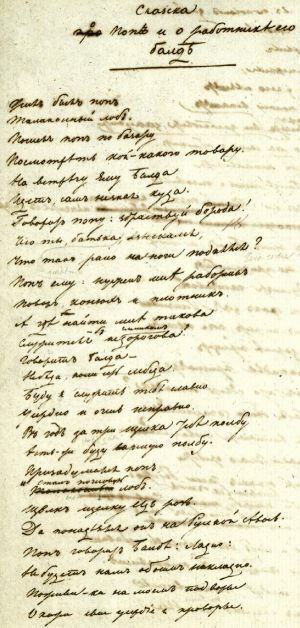 Сказка
о Попѣ и о работникѣ его
Балдѣ
Жилъ былъ попъ
Толоконный лобъ.
Пошелъ попъ по базару
Посмотрѣть кой-какого товару.
На встрѣчу ему Балда
Идетъ, самъ не знаетъ куда.
Говоритъ попу: здраствуй борода!
Что ты, батька, взыскался,
Что такъ рано на ноги поднялся?
Попъ ему: нуженъ мнѣ работникъ
Поваръ, конюхъ и плотникъ.
А гдѣ найти мнѣ такова
Служителя не слишкомъ дорогова?
Говоритъ Балда —
Буду я служить тебѣ славно
Усердно и очень исправно.
Въ годъ за три щелка тебѣ по лбу
Ѣсть-же буду вареную полбу.
Призадумался попъ
И сталъ почесывать лобъ.
Щелкъ щелку вѣдь розь
Да понадѣялся онъ на Русской авось.
Попъ говоритъ Балдѣ: ладно:
Не будетъ намъ обоимъ накладно.
Поживи-ка на моемъ подворьѣ
Окажи свое усердіе и проворье.